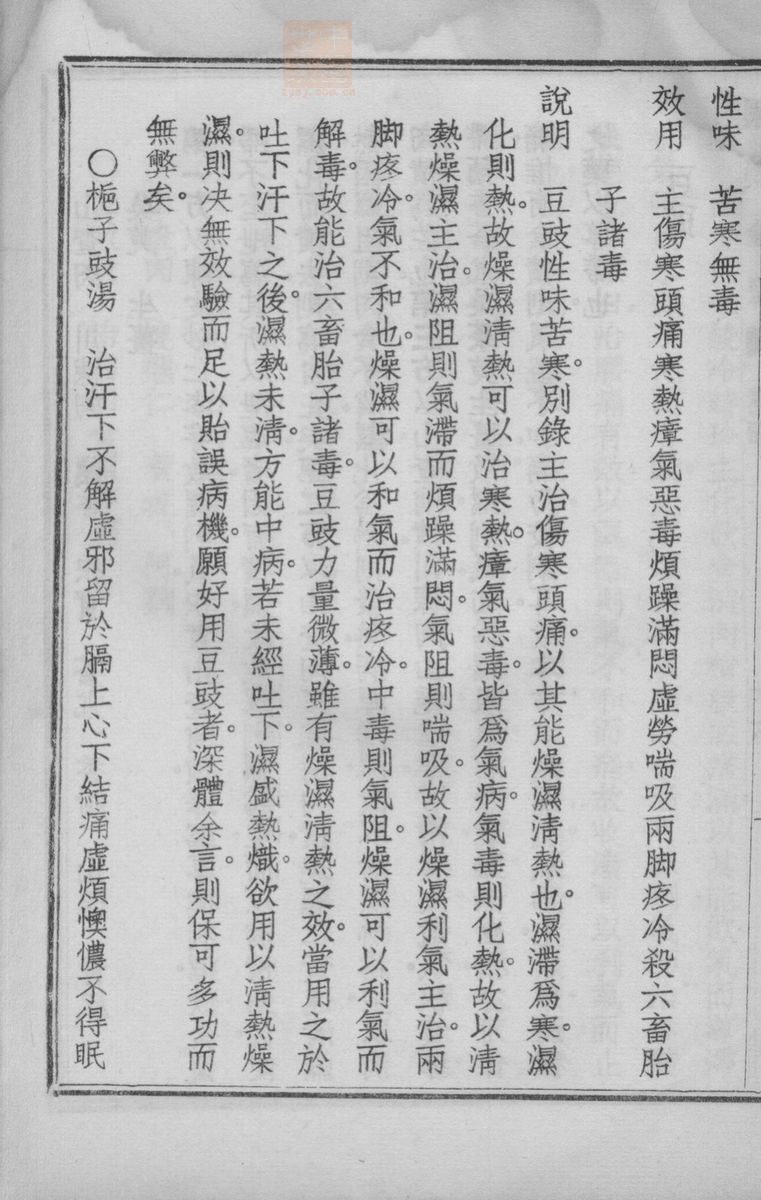 性味　苦寒無毒
效用　主傷寒頭痛寒熱瘴氣惡毒煩躁滿悶虛勞喘吸兩脚疼冷殺六畜胎
子諸毒
說明　豆豉性味苦寒。別錄主治傷寒頭痛。以其能燥濕清熱也。濕滯爲寒。濕
化則熱。故燥濕清熱可以治寒熱。瘴氣惡毒。皆爲氣病。氣毒則化熱。故以清
熱燥濕主治。濕阻則氣滯而煩躁滿悶。氣阻則喘吸。故以燥濕利氣主治。兩
脚疼冷。氣不和也。燥濕可以和氣而治疼冷。中毒則氣阻。燥濕可以利氣而
解毒。故能治六畜胎子諸毒。豆豉力量微薄。雖有燥濕清熱之效。當用之於
吐下汗下之後。濕熱未清。方能中病。若未經吐下。濕盛熱熾。欲用以清熱燥
濕。則决無效驗而足以貽誤病機。願好用豆豉者。深體余言。則保可多功而
無弊矣。
○梔子豉湯　治汗下不解虛邪留於膈上心下結痛虛煩懊憹不得眠
zysj.com.cn